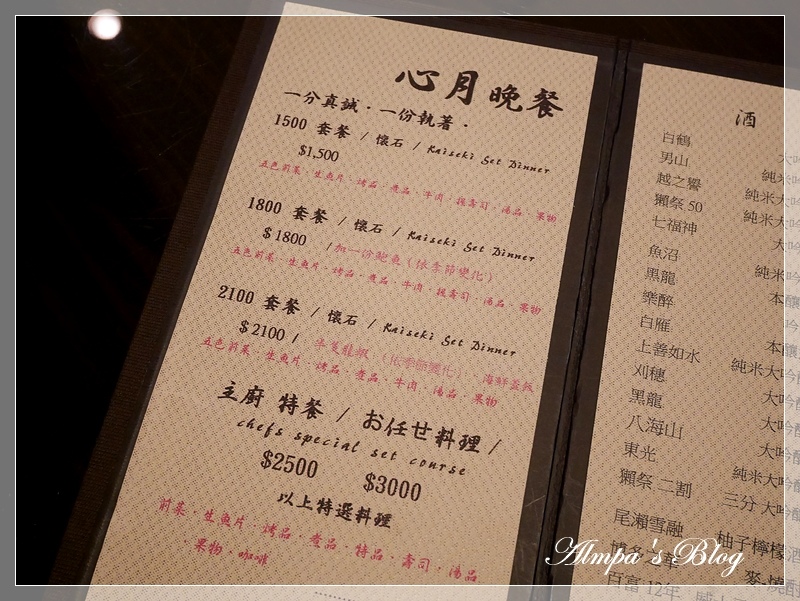 心月晚餐
一分真誠・一份執著・
1500 套餐 / 懷石 / Kaiseki Set Dinner
$1,500
五色前菜・生魚片・烤品・煮品・牛肉・握壽司・湯品・果物
1800 套餐 / 懷石 / Kaiseki Set Dinner
$1800 /加一份鮑魚(依季節變化)
五色前菜・生魚片・烤品・煮品・牛肉・握壽司・湯品・果物
2100 套餐 / 懷石 / Kaiseki Set Dinner
$2100 / 半隻龍蝦 (依季節變化) 海鮮蓋飯
五色前菜・生魚片・烤品・煮品・牛肉・湯品・果物
主廚 特餐 / お任せ料理 /
chefs special set course
$2500 $3000
以上特選料理
前菜・生魚片・烤品・煮品・特品・壽司・湯品
・果物・咖啡
酒
白鶴
男山 純米
越之譽 純米大吟
獺祭 50 純米大吟
七福神
魚沼 純米
黑龍
樂醉 本釀
白雁
上善如水
刈穗 純米大吟
黑龍 大吟釀
八海山
東光 大吟釀
獺祭 二割 三分
尾瀨雪融 柚子檸檬酒
百富 12年
Almpa's Blog